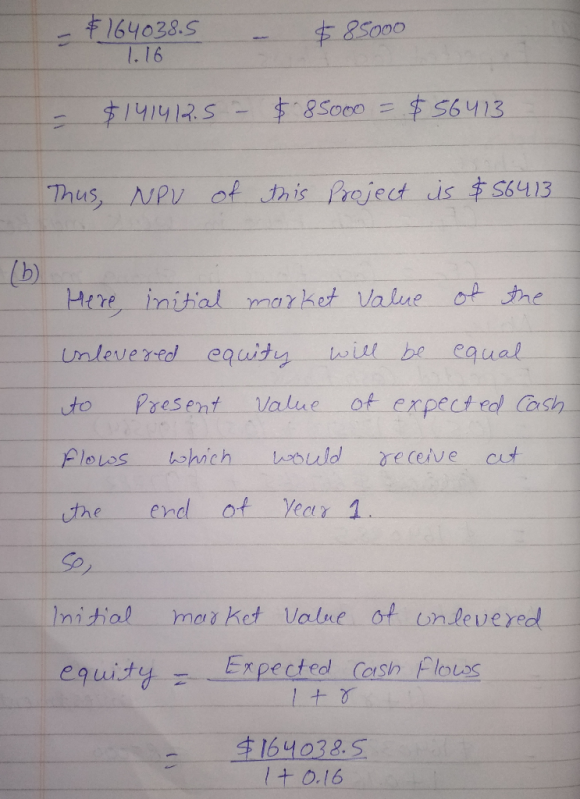 = $164038.5 / 1.16 - $85000
= $141412.5 - $85000 = $56413
Thus, NPV of this Project is $56413
(b)
Here, initial market Value of the
unlevered equity will be equal
to Present Value of expected Cash
Flows which would receive at
the end of Year 1.
So,
Initial market Value of unlevered
equity = Expected Cash Flows / 1 + r
= $164038.5 / 1 + 0.16